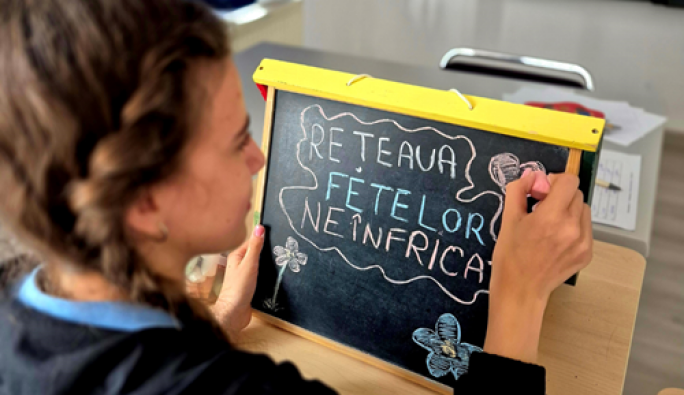 REȚEAUA
FETELOR
NEÎNFRICAT